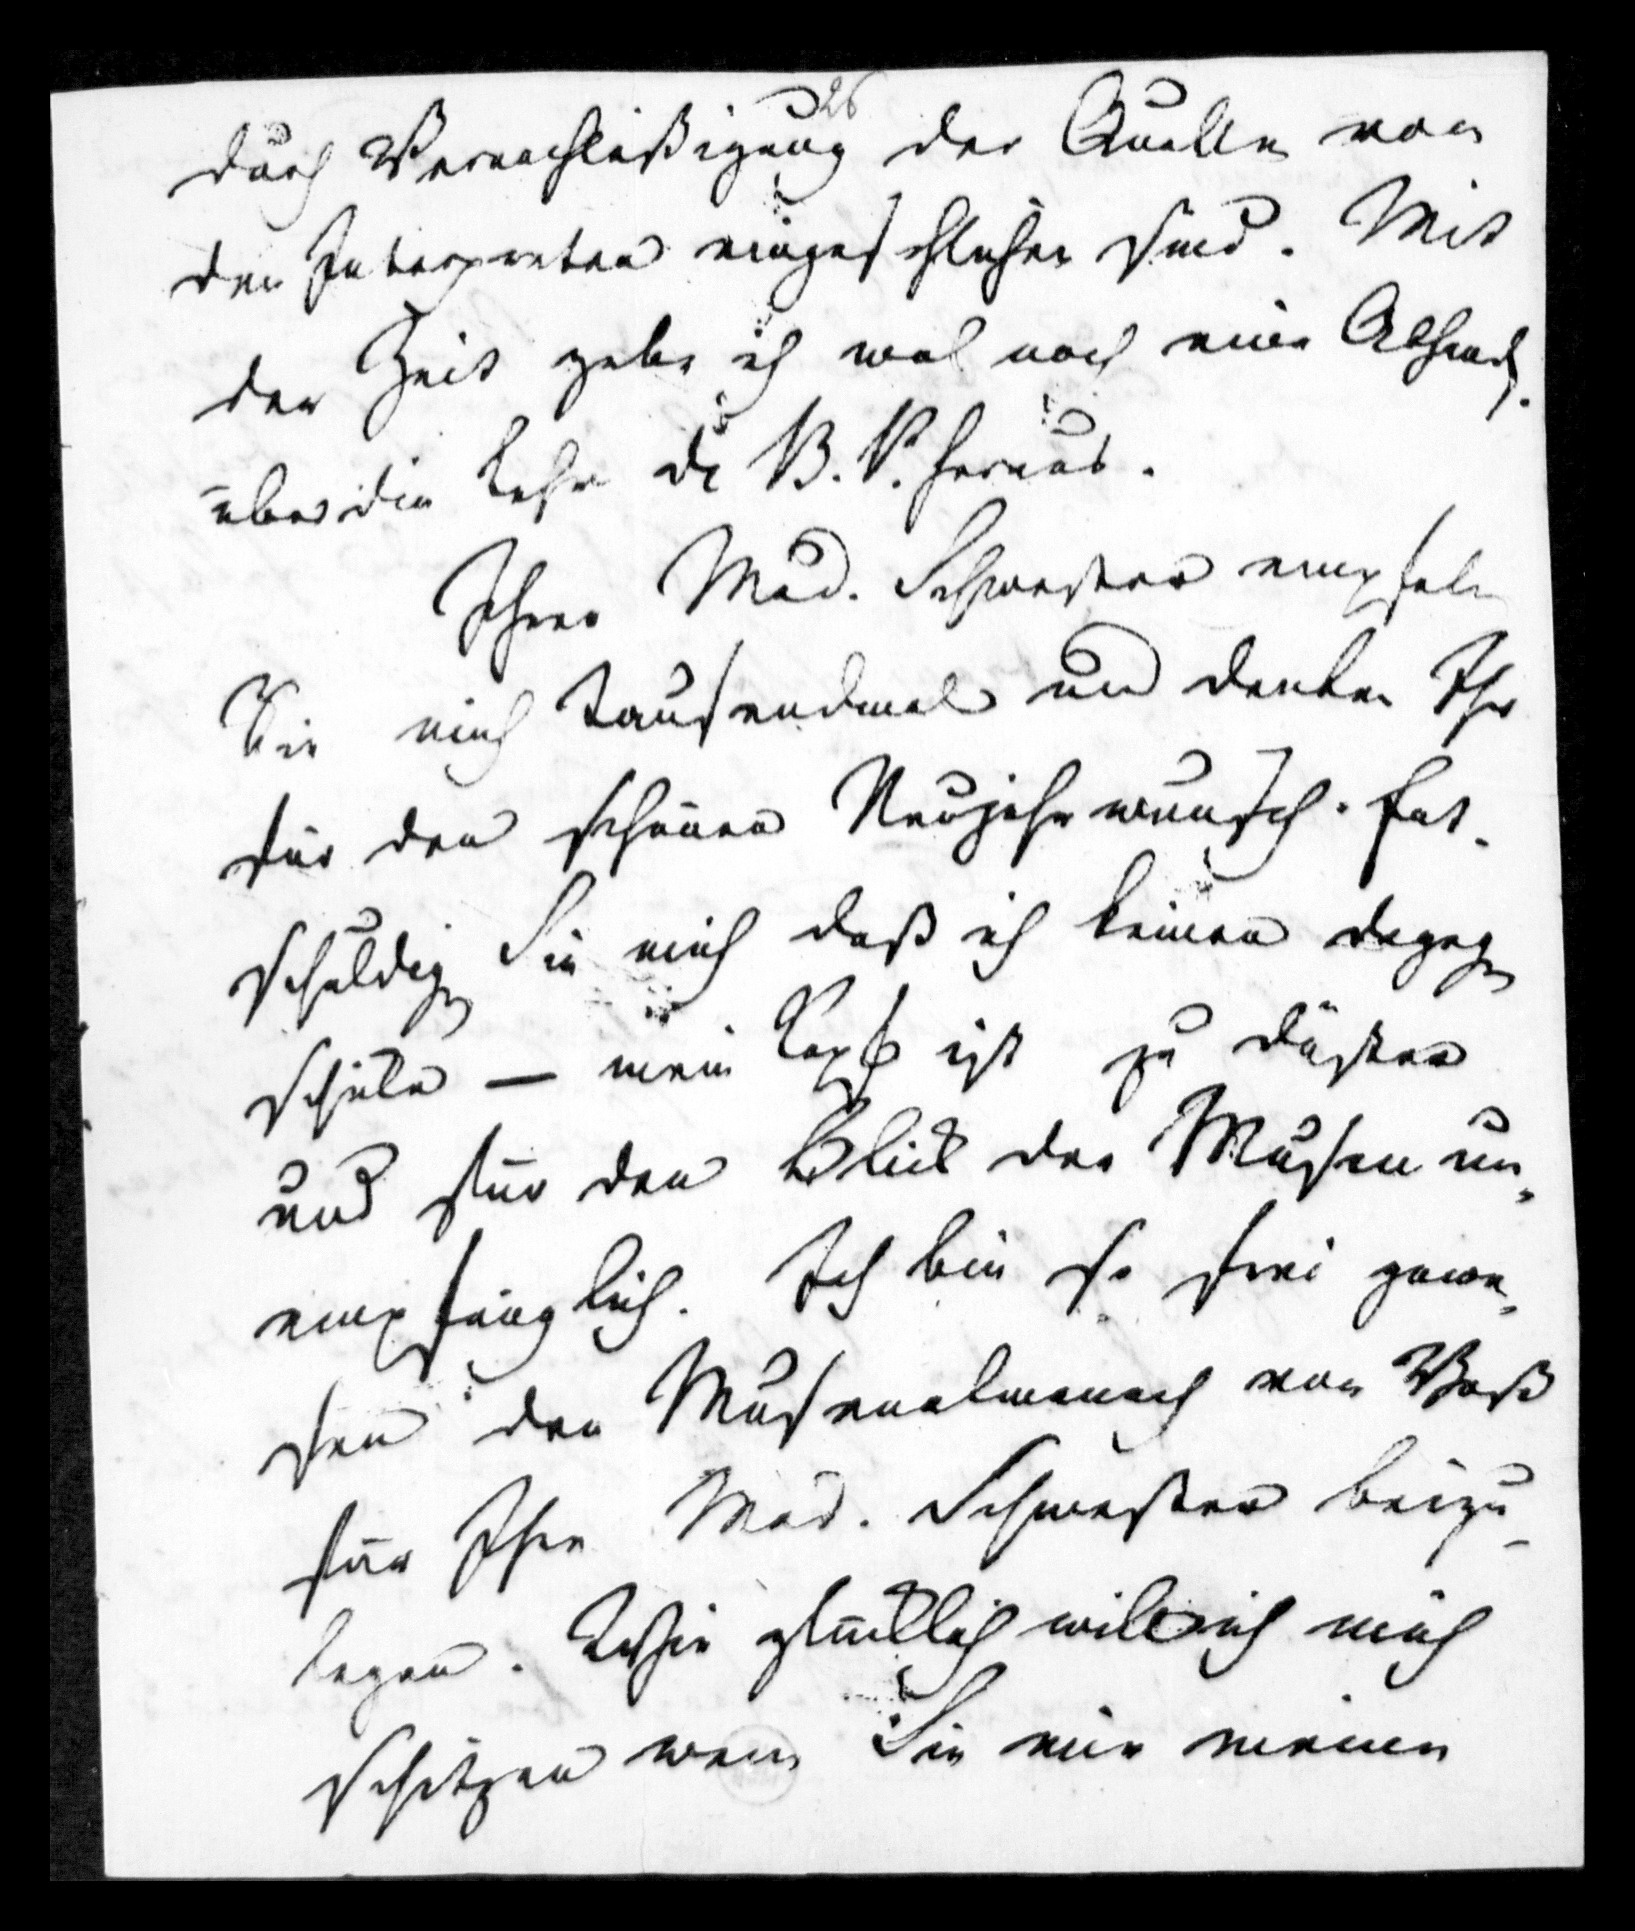 26
durch Vernachläßigung der Quellen von
den Interpreten eingeschlichen sind. Mit
der Zeit gebe ich wol noch eine Abhandl.
über die Lehre de B. P. heraus.
Ihrer Mad. Schwester empfeln
Sie mich tausendmal und danken Ihr
für den schönen Neujahrwunsch. Ent-
schuldigen Sie mich daß ich keinen dagegen
schike — mein Kopf ist zu düster
und für den Blick der Musen un-
empfänglich. Ich bin so frei gewe-
sen den Musenalmanach von Voß
für Ihre Mad. Schwester beizu-
legen. Wie glücklich will ich mich
schätzen wenn Sie mir meinen